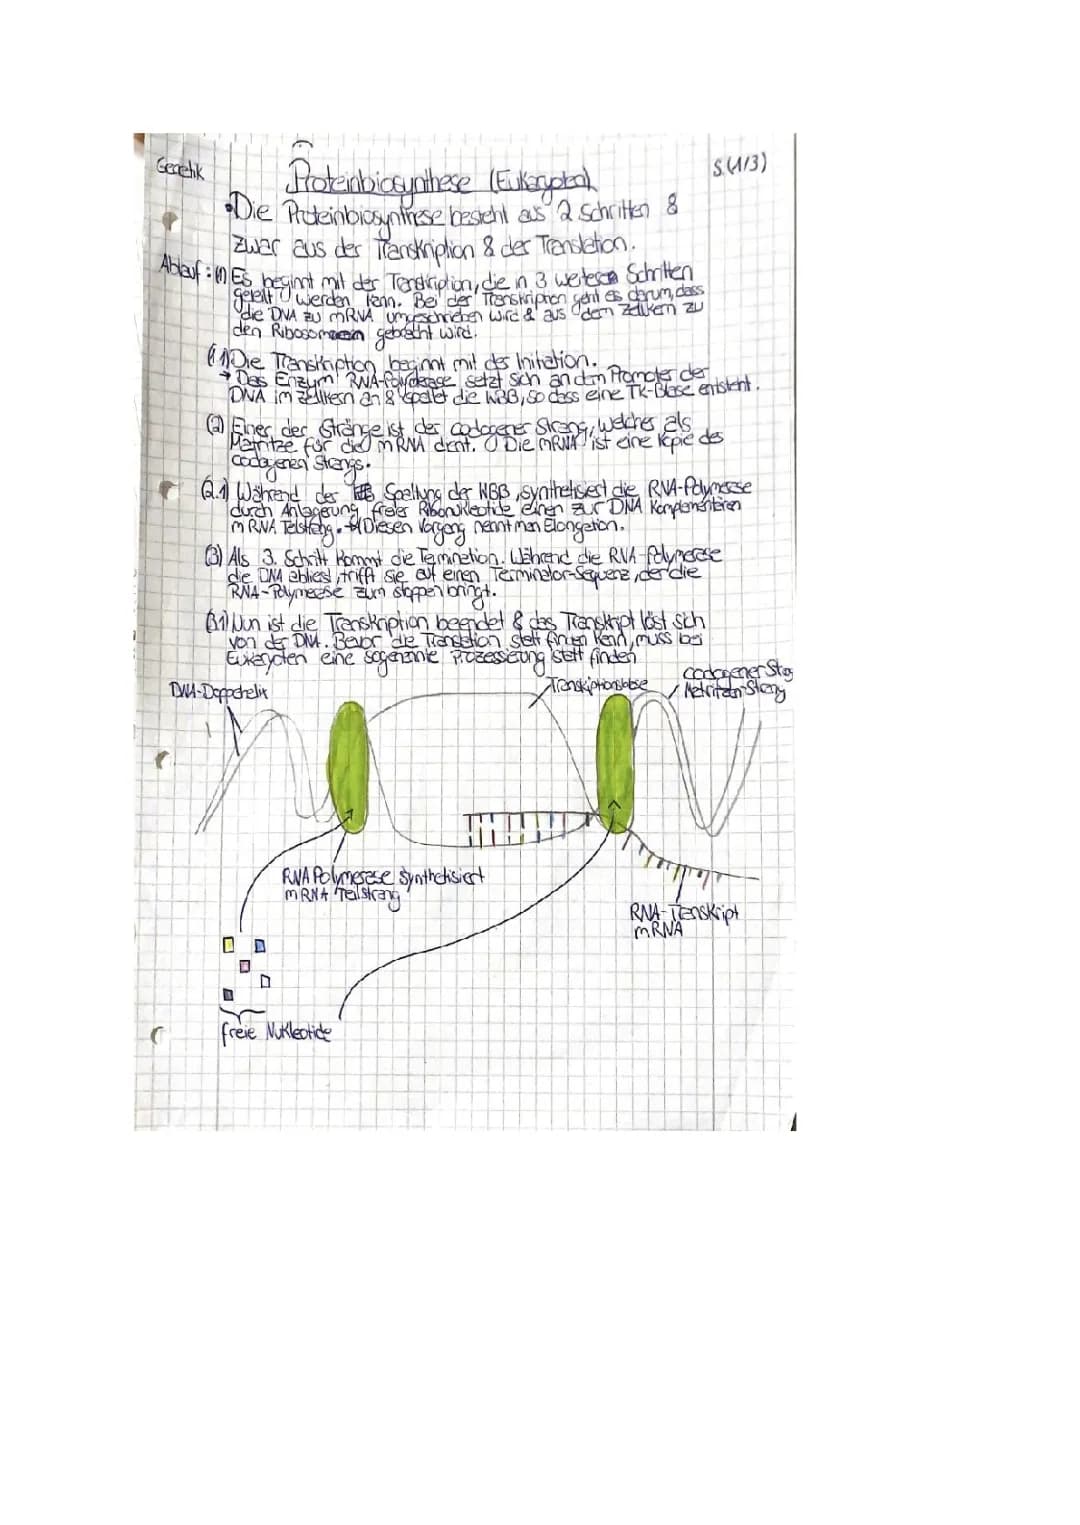 Genetik
S.(1/3)
Proteinbiosynthese (Eukaryoten)
•Die Proteinbiosynthese besteht aus 2 Schritten &
zwar aus der Transkription & der Translation.
Ablauf: (1) Es beginnt mit der Transkription, die in 3 weiteren Schritten
geteilt werden kann. Bei der Transkription geht es darum, dass
die DNA zu mRNA umgeschrieben wird & aus dem Zellkern zu
den Ribosomen gebracht wird.
(1.1) Die Transkription beginnt mit der Initiation.
→ Das Enzym RNA-Polymerase setzt sich an den Promoter der
DNA im Zellkern an & spaltet die WBB, so dass eine TK-Blase entsteht.
(2) Einer der Stränge ist der codogener Strang, welcher als
Matritze für die mRNA dient. Die mRNA ist eine Kopie des
codogenen Strangs.
(2.1) Während der Spaltung der WBB, synthetisiert die RNA-Polymerase
durch Anlagerung freier Ribonukleotide einen zur DNA komplementären
mRNA Teilstrang. Diesen Vorgang nennt man Elongation.
(3) Als 3. Schritt kommt die Termination. Während die RNA-Polymerase
die DNA abliest, trifft sie auf einen Terminator-Sequenz, der die
RNA-Polymerase zum stoppen bringt.
(3.1) Nun ist die Transkription beendet & das Transkript löst sich
von der DNA. Bevor die Translation statt finden kann, muss bei
Eukaryoten eine sogenannte Prozessierung statt finden
DNA-Doppelhelix
Transkriptionsblase
codogener Strang
Matritzen Strang
RNA Polymerase synthetisiert
mRNA Teilstrang
RNA-Transkript
mRNA
freie Nukleotide